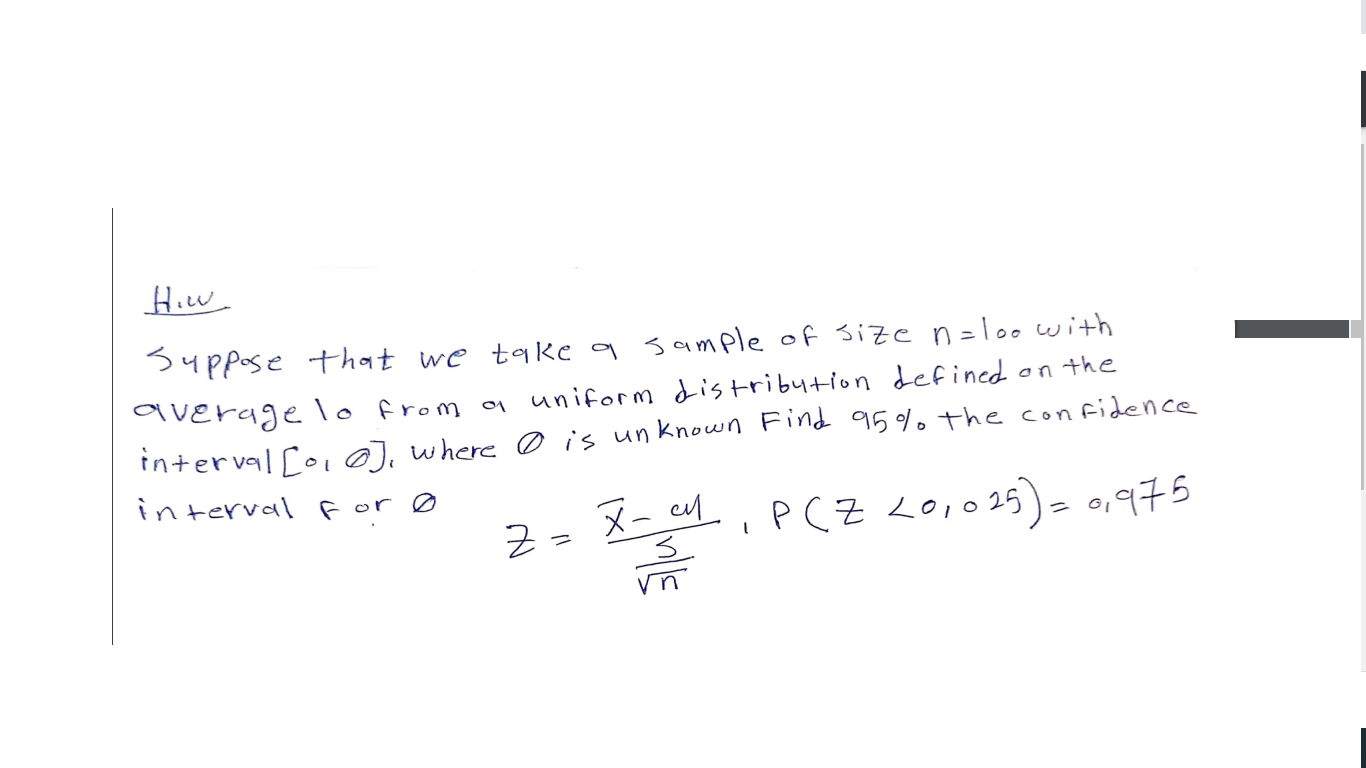 H.w
Suppose that we take a sample of size n=100 with
average 10 from a uniform distribution defined on the
interval [0, Ø], where Ø is unknown Find 95% the confidence
interval for Ø
Z = (X̄ - M) / (S / √n) , P(Z < 0,025) = 0,975